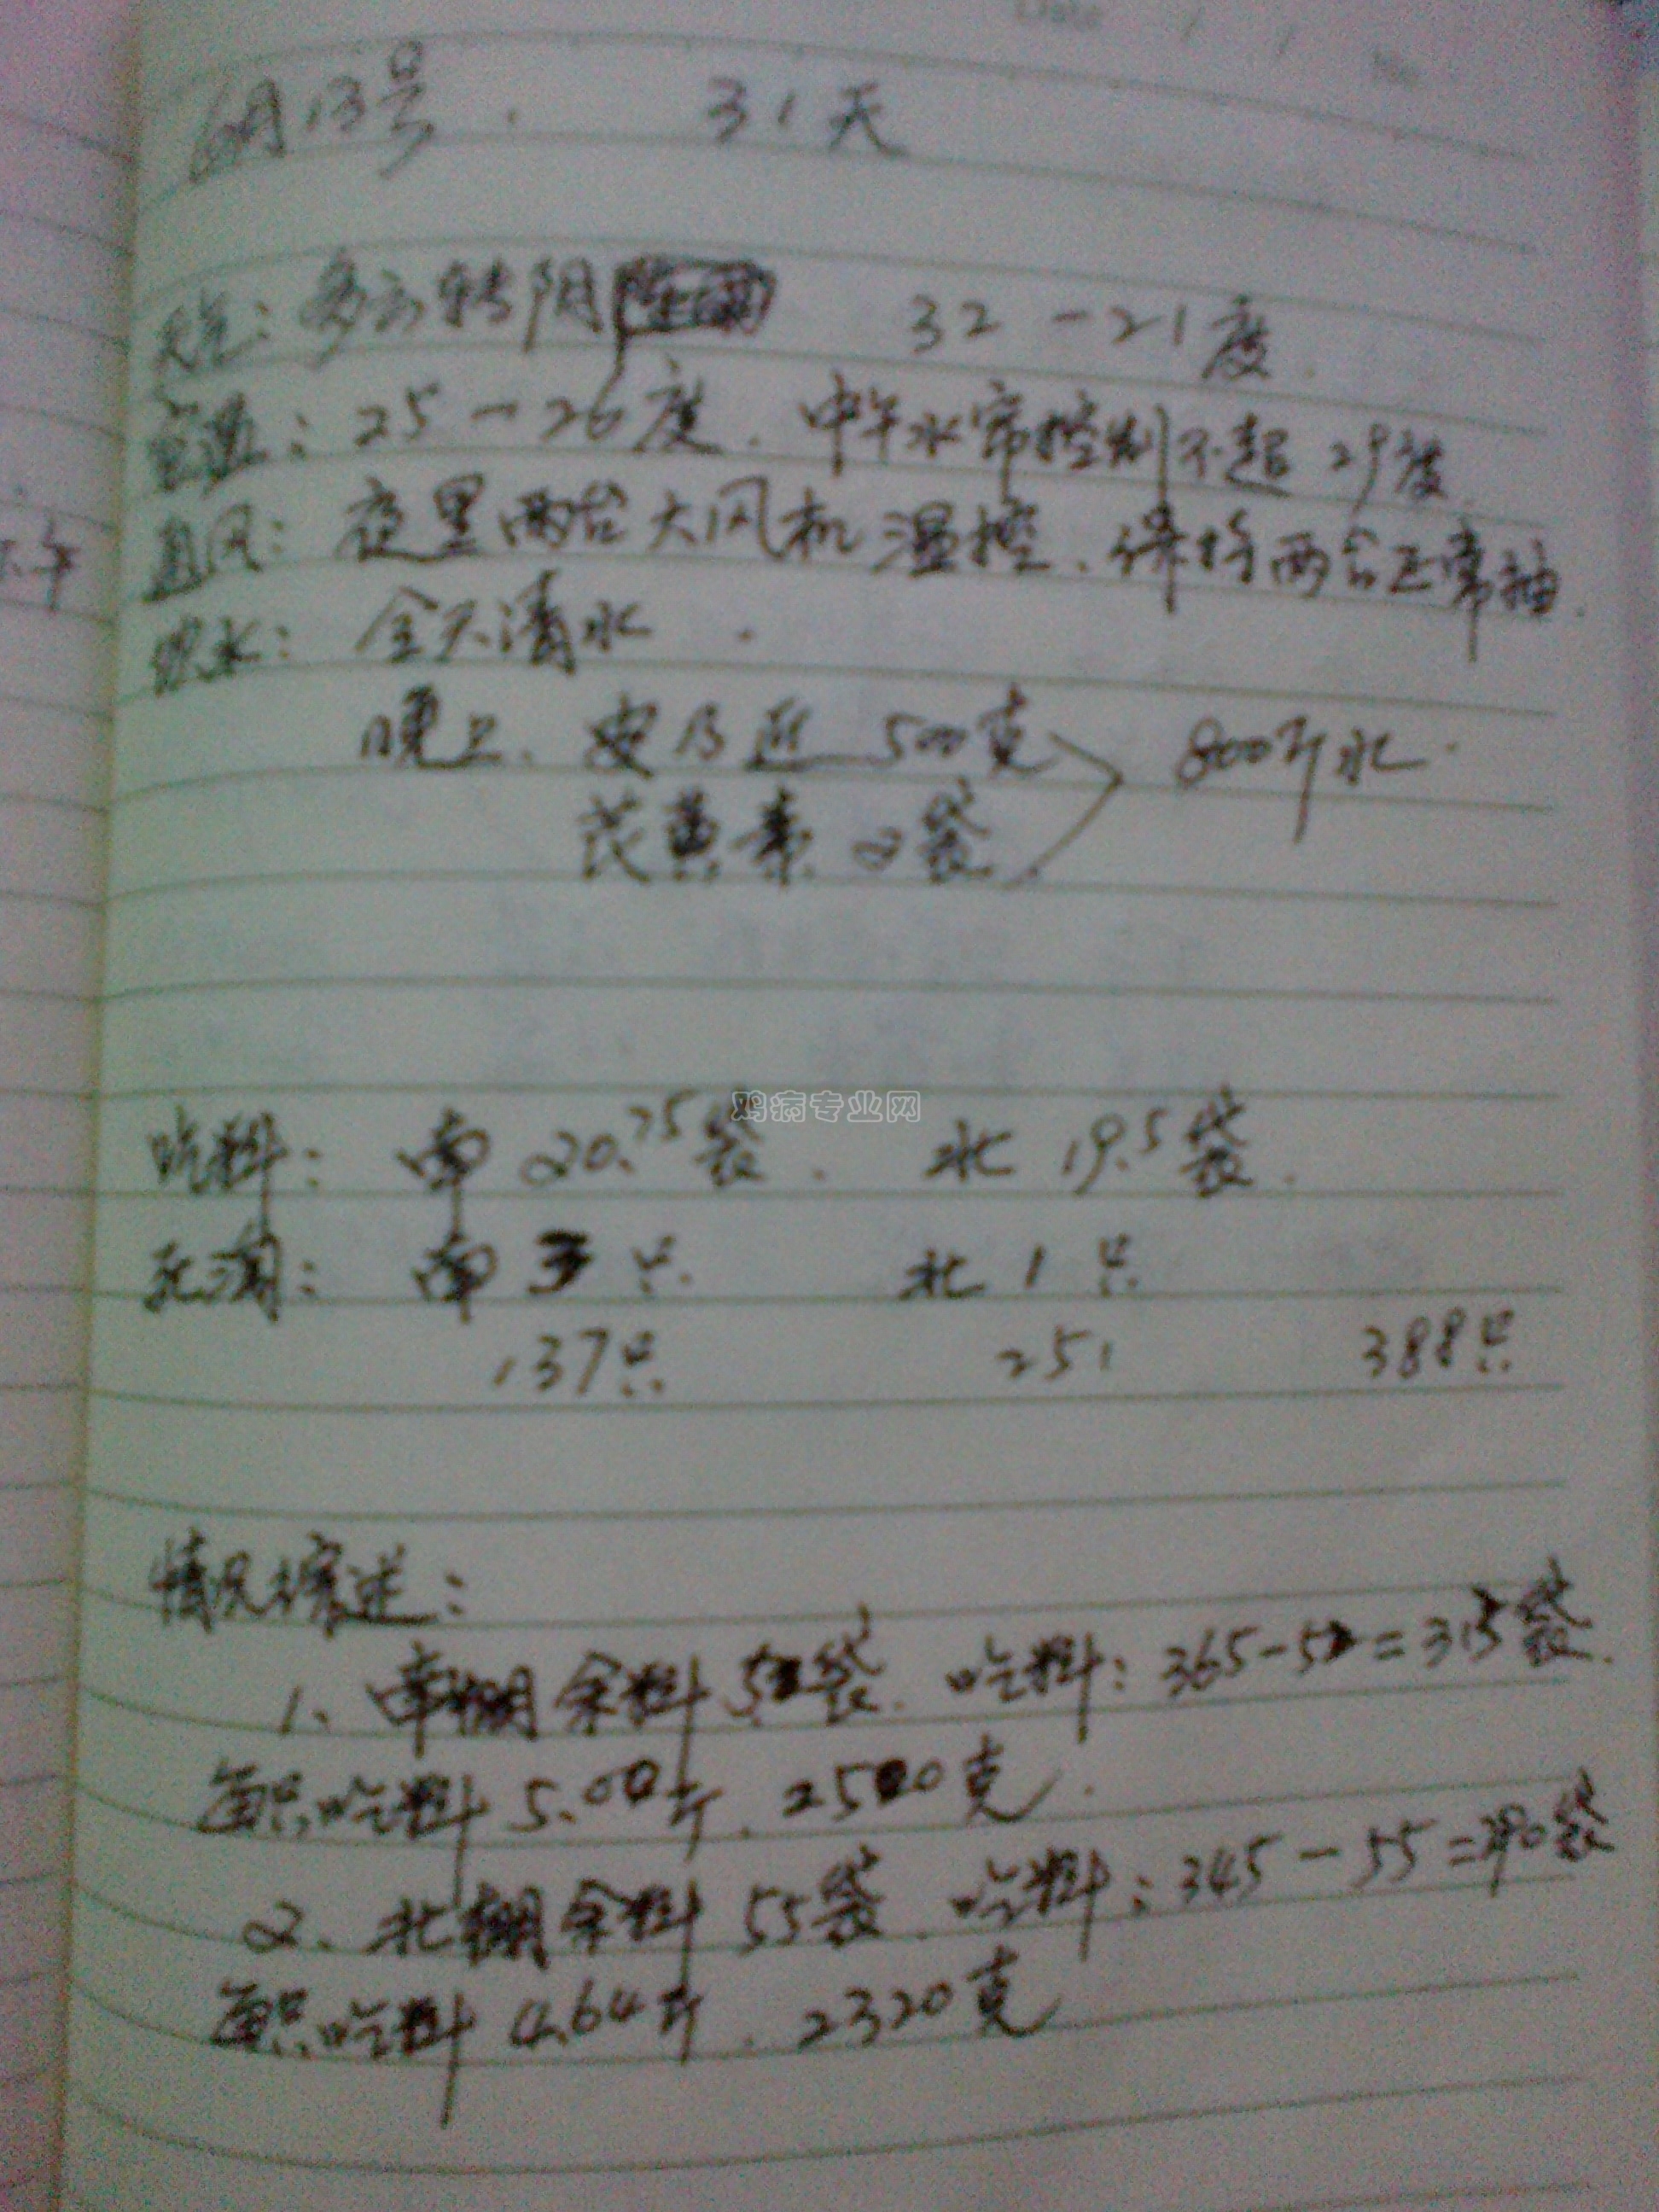 Date / /
No
6月13号. 31天
天气: 多云转阴 32-21度.
室温: 25-26度. 中午水帘控制不超29度.
通风: 夜里两台大风机温控、保持两台正常抽.
饮水: 全天清水.
晚上、安乃近 500克 800斤水.
芪黄素 2袋.
鸡病专业网
吃料: 南 20.75袋. 北 19.5袋.
死淘: 南 3 只. 北 1 只
137只. 251 388只.
情况综述:
1、南棚余料 袋. 吃料: 365- =315袋.
每只吃料 5.00斤. 2500克.
2、北棚余料 55袋. 吃料: 345-55=290袋
每只吃料 4.64斤. 2320克